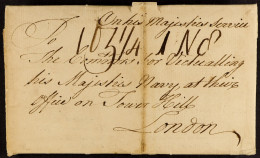 On his Majesties Service
To
The Comrs. for Victualling
his Majesties Navy, at their
Office on Tower Hill
London